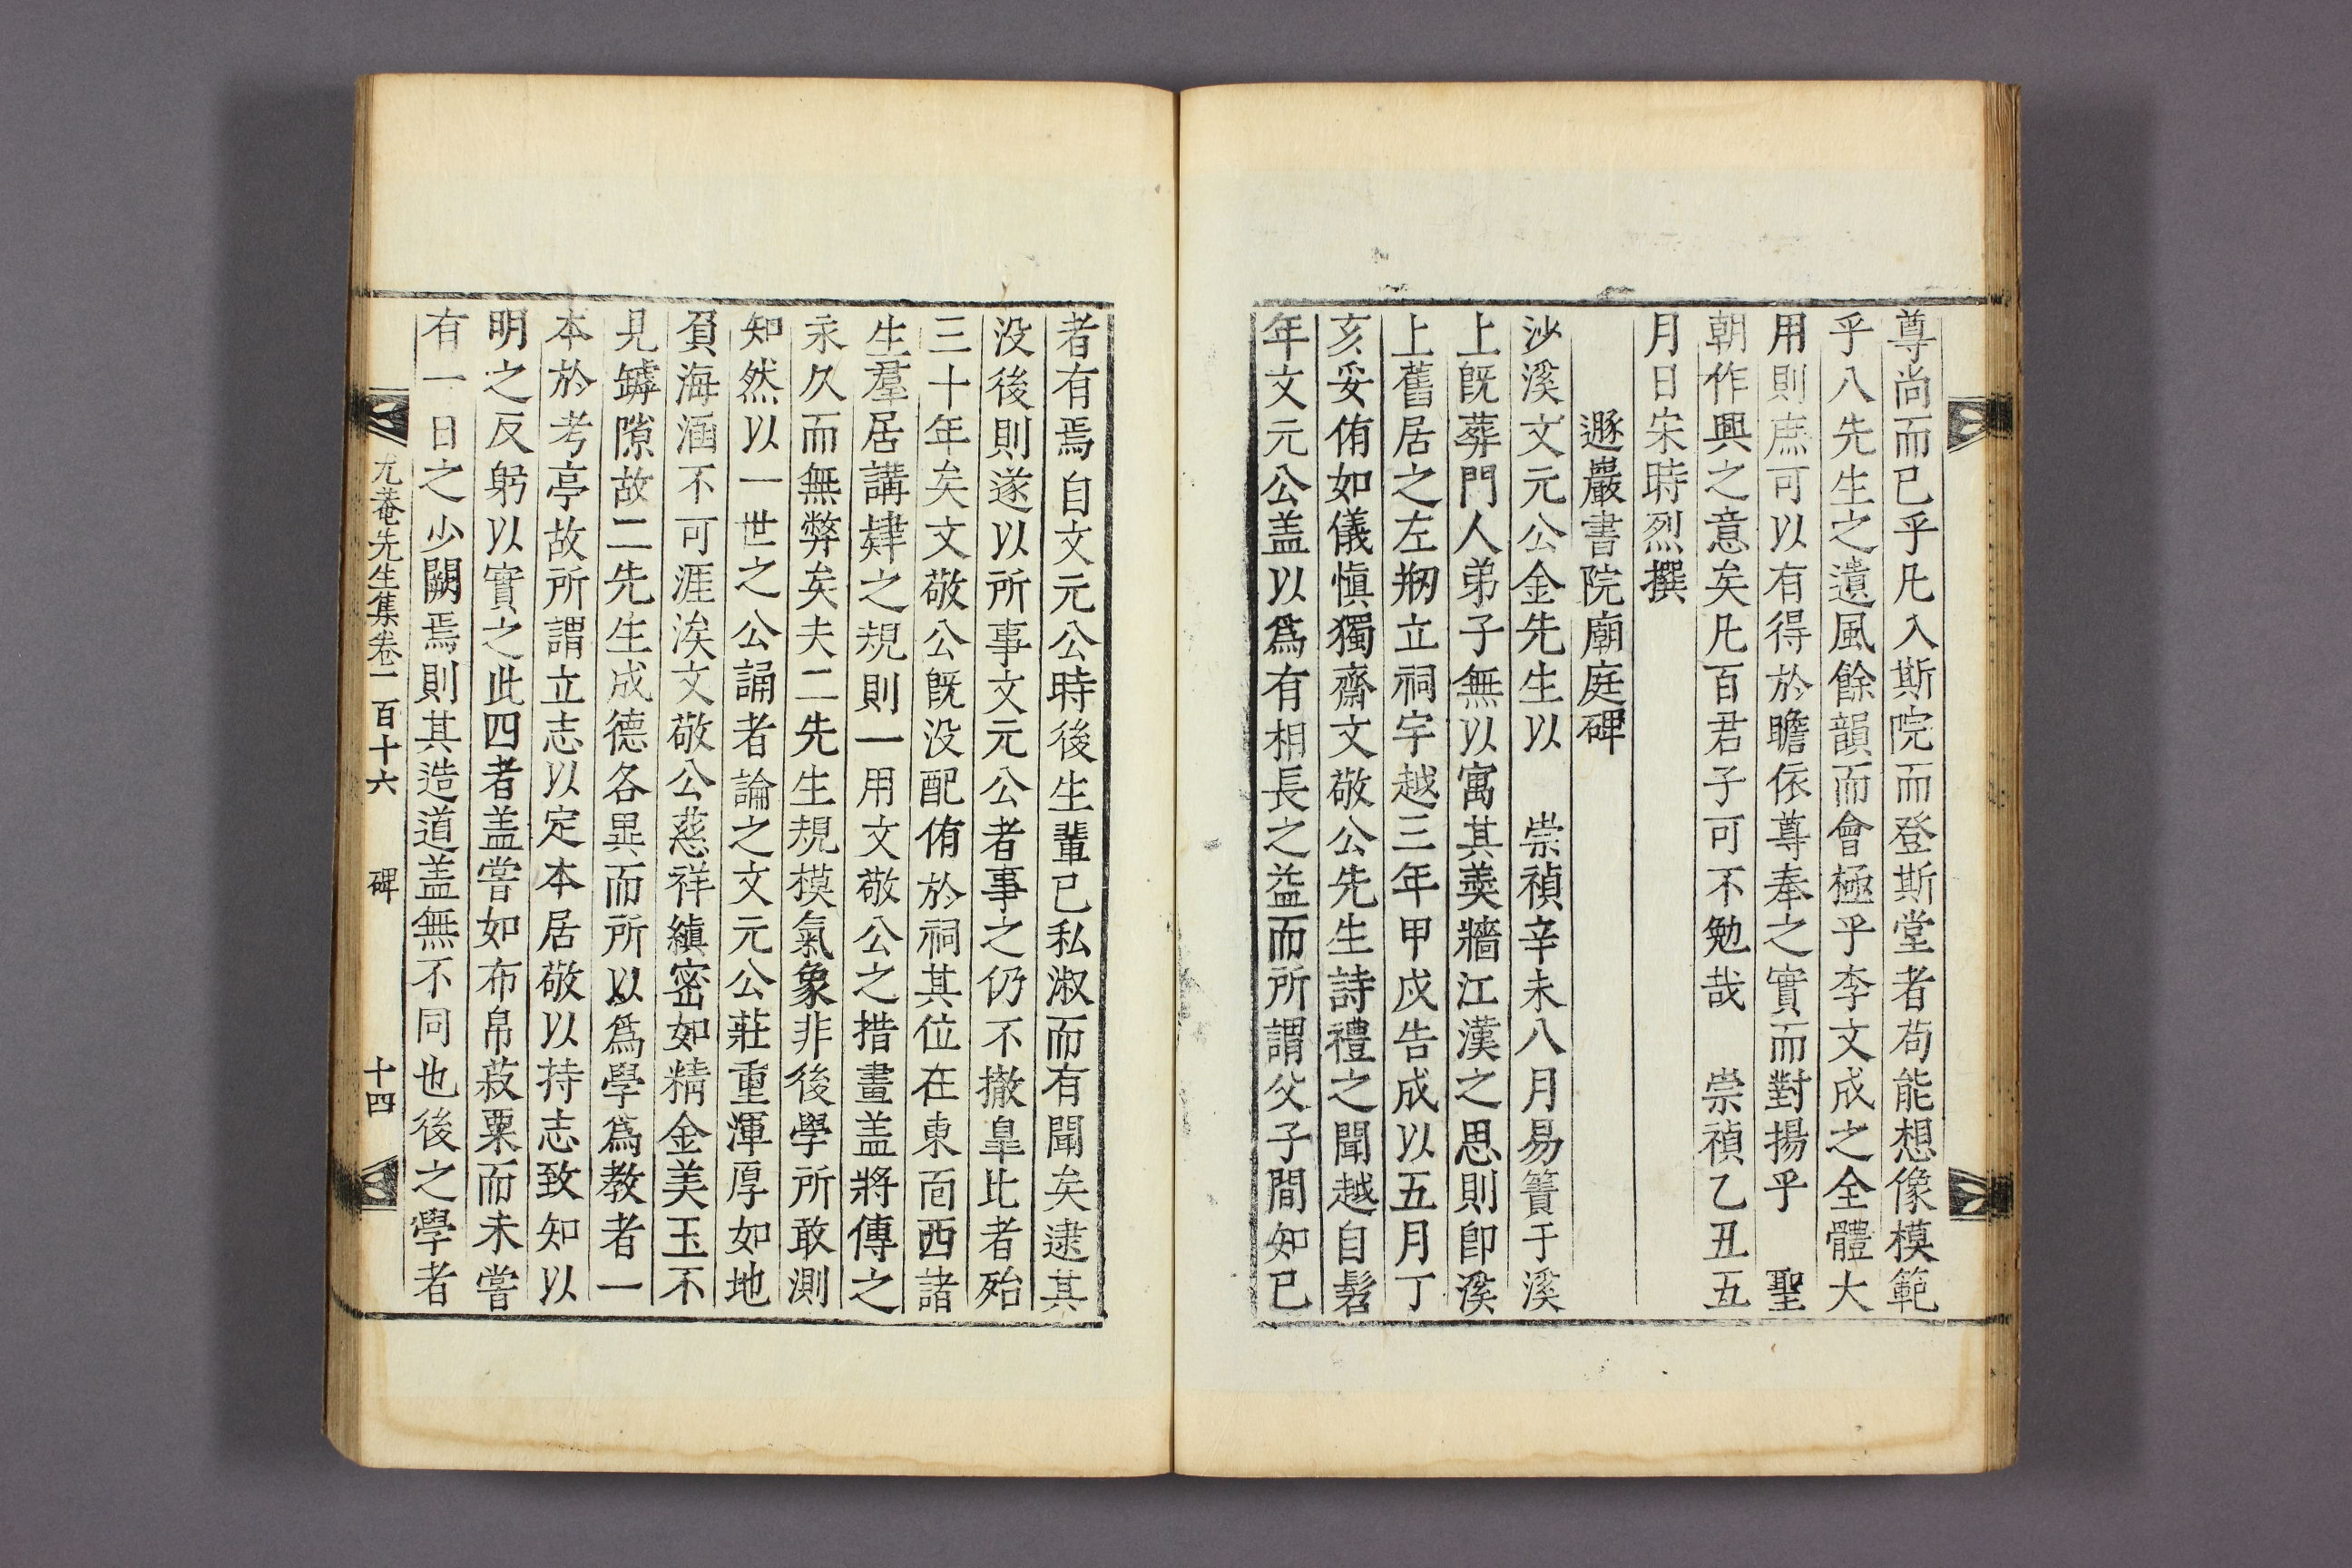 尊尚而已乎凡入斯院而登斯堂者苟能想像模範
乎八先生之遺風餘韻而會極乎李文成之全體大
用則庶可以有得於瞻依尊奉之實而對揚乎　聖
朝作興之意矣凡百君子可不勉哉　崇禎乙丑五
月日宋時烈撰
遯巖書院廟庭碑
沙溪文元公金先生以　崇禎辛未八月易簀于溪
上旣葬門人弟子無以寓其羹牆江漢之思則卽溪
上舊居之左刱立祠宇越三年甲戌告成以五月丁
亥妥侑如儀愼獨齋文敬公先生詩禮之聞越自髫
年文元公盖以爲有相長之益而所謂父子間知已
者有焉自文元公時後生輩已私淑而有聞矣逮其
没後則遂以所事文元公者事之仍不撤臯比者殆
三十年矣文敬公旣没配侑於祠其位在東而西諸
生羣居講肄之規則一用文敬公之措畫盖將傳之
永久而無弊矣夫二先生規模氣象非後學所敢測
知然以一世之公誦者論之文元公莊重渾厚如地
負海涵不可涯涘文敬公慈祥縝密如精金美玉不
見罅隙故二先生成德各異而所以爲學爲教者一
本於考亭故所謂立志以定本居敬以持志致知以
明之反躬以實之此四者盖嘗如布帛菽粟而未嘗
有一日之少闕焉則其造道盖無不同也後之學者
尤菴先生集卷一百十六　碑　十四